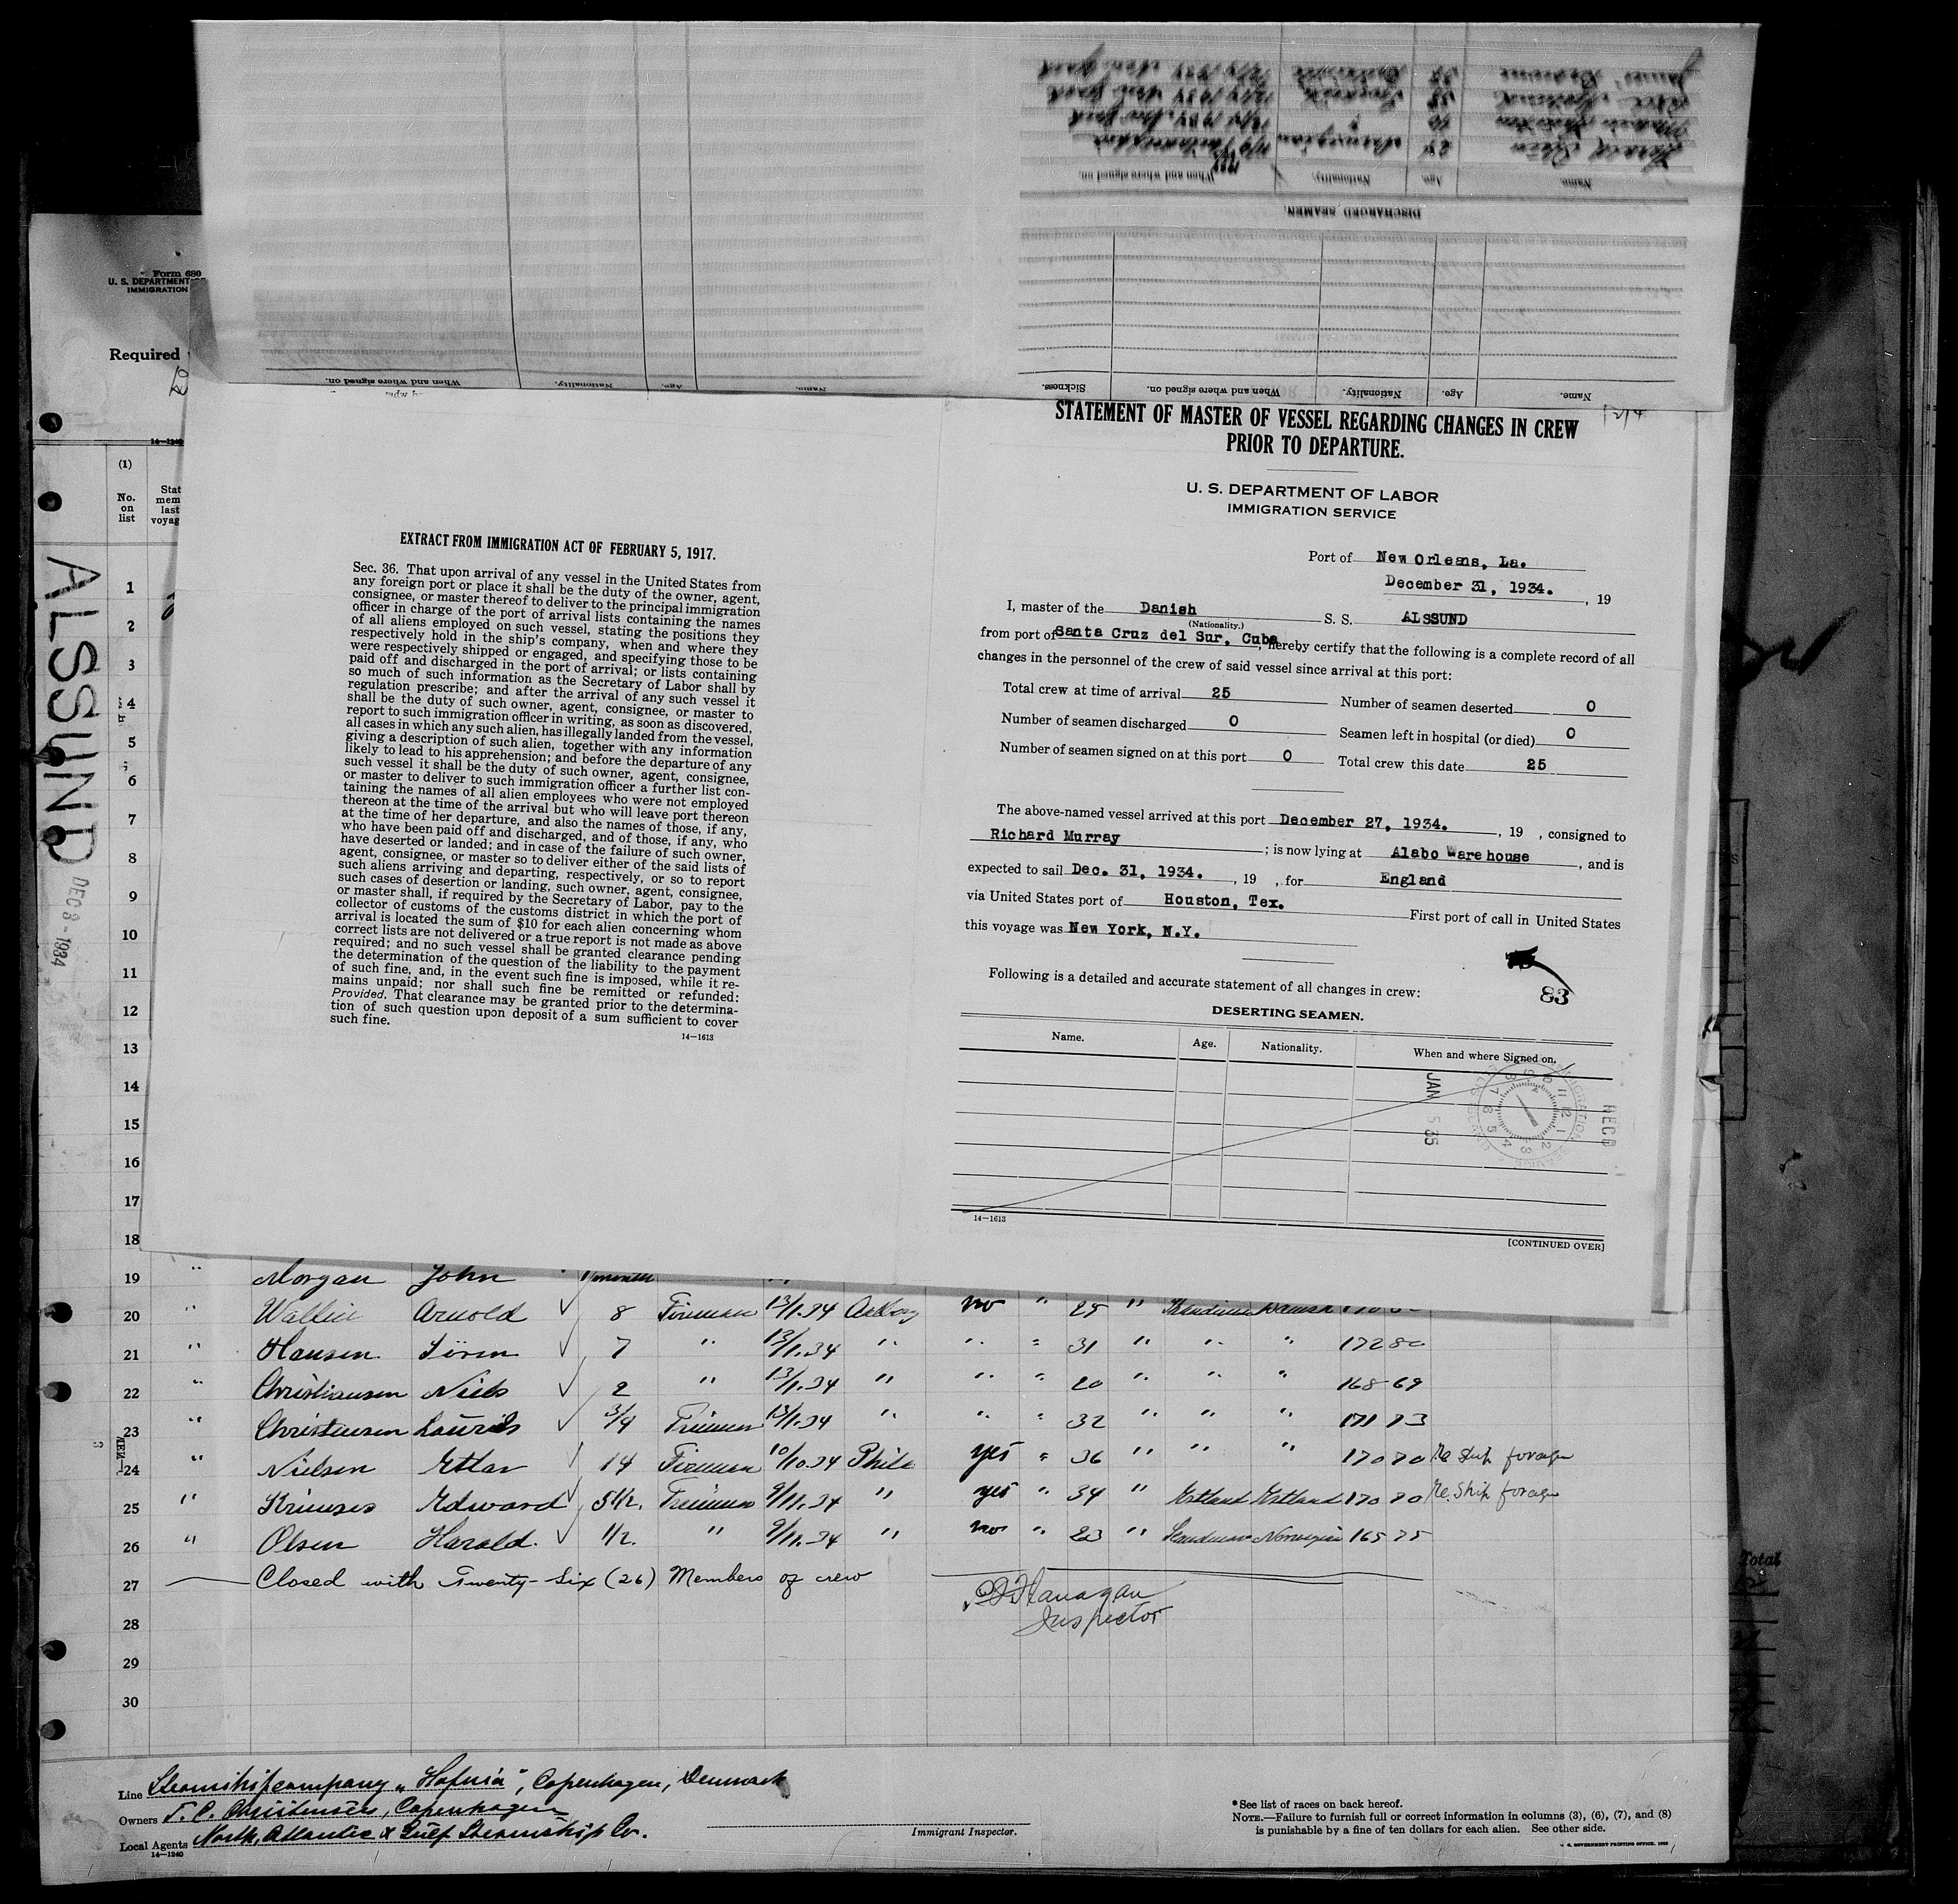 Form 680
U. S. DEPARTMENT
IMMIGRATION
Required
14—1240
(1)
No.
on
list
Stat
mem
last
voyag
ALSSUND
DEC 3 - 1934
DISCHARGED SEAMEN.
Name. Age. Nationality. When and where signed on.
Name. Age. Nationality. When and where signed on. Sickness.
Name. Age. Nationality. When and where signed on.
EXTRACT FROM IMMIGRATION ACT OF FEBRUARY 5, 1917.
Sec. 36. That upon arrival of any vessel in the United States from
any foreign port or place it shall be the duty of the owner, agent,
consignee, or master thereof to deliver to the principal immigration
officer in charge of the port of arrival lists containing the names
of all aliens employed on such vessel, stating the positions they
respectively hold in the ship's company, when and where they
were respectively shipped or engaged, and specifying those to be
paid off and discharged in the port of arrival; or lists containing
so much of such information as the Secretary of Labor shall by
regulation prescribe; and after the arrival of any such vessel it
shall be the duty of such owner, agent, consignee, or master to
report to such immigration officer in writing, as soon as discovered,
all cases in which any such alien, has illegally landed from the vessel,
giving a description of such alien, together with any information
likely to lead to his apprehension; and before the departure of any
such vessel it shall be the duty of such owner, agent, consignee,
or master to deliver to such immigration officer a further list con-
taining the names of all alien employees who were not employed
thereon at the time of the arrival but who will leave port thereon
at the time of her departure, and also the names of those, if any,
who have been paid off and discharged, and of those, if any, who
have deserted or landed; and in case of the failure of such owner,
agent, consignee, or master so to deliver either of the said lists of
such aliens arriving and departing, respectively, or so to report
such cases of desertion or landing, such owner, agent, consignee,
or master shall, if required by the Secretary of Labor, pay to the
collector of customs of the customs district in which the port of
arrival is located the sum of $10 for each alien concerning whom
correct lists are not delivered or a true report is not made as above
required; and no such vessel shall be granted clearance pending
the determination of the question of the liability to the payment
of such fine, and, in the event such fine is imposed, while it re-
mains unpaid; nor shall such fine be remitted or refunded:
Provided. That clearance may be granted prior to the determina-
tion of such question upon deposit of a sum sufficient to cover
such fine.
14—1613
STATEMENT OF MASTER OF VESSEL REGARDING CHANGES IN CREW
PRIOR TO DEPARTURE.
U. S. DEPARTMENT OF LABOR
IMMIGRATION SERVICE
Port of New Orleans, La.
December 31, 1934. , 19
I, master of the Danish S. S. ALSSUND
(Nationality.)
from port of Santa Cruz del Sur, Cuba, hereby certify that the following is a complete record of all
changes in the personnel of the crew of said vessel since arrival at this port:
Total crew at time of arrival 25 Number of seamen deserted 0
Number of seamen discharged 0 Seamen left in hospital (or died) 0
Number of seamen signed on at this port 0 Total crew this date 25
The above-named vessel arrived at this port December 27, 1934. , 19 , consigned to
Richard Murray ; is now lying at Alabo Warehouse , and is
expected to sail Dec. 31, 1934. , 19 , for England
via United States port of Houston, Tex. First port of call in United States
this voyage was New York, N.Y.
83
Following is a detailed and accurate statement of all changes in crew:
DESERTING SEAMEN.
Name. Age. Nationality. When and where Signed on.
JAN 5 35
RECD
14—1613
[CONTINUED OVER]
1
2
3
4
5
6
7
8
9
10
11
12
13
14
15
16
17
18
19 " Morgan John 1 month
20 " Wallin Arnold 8 Fireman 13/1.34 no " 25 "
21 " Hansen Sören 7 " 13/1.34 " " " 31 " " " 172 80
22 " Christiansen Niels 2 " 13/1.34 " " " 20 " " " 168 69
23 " Christensen Laurids 3/4 Trimmer 13/1.34 " " " 32 " " " 171 73
24 " Nielsen Ettar 14 Fireman 10/10.34 Phila yes " 36 " " " 170 70
25 " Edward 5 1/2. Trimmer 9/11.34 " yes " 34 " Estland Estland 170 70
26 " Olsen Harald. 1/2. " 9/11.34 " no " 23 " Norwegian 165 75
27 Closed with Twenty-Six (26) Members of crew
Flanagan
Inspector
28
29
30
Line Steamshipcompany „Hafnia", Copenhagen, Denmark
Owners Copenhagen
Local Agents North Atlantic & Gulf Steamship Co.
14—1240
Immigrant Inspector.
* See list of races on back hereof.
NOTE.—Failure to furnish full or correct information in columns (3), (6), (7), and (8)
is punishable by a fine of ten dollars for each alien. See other side.
Total